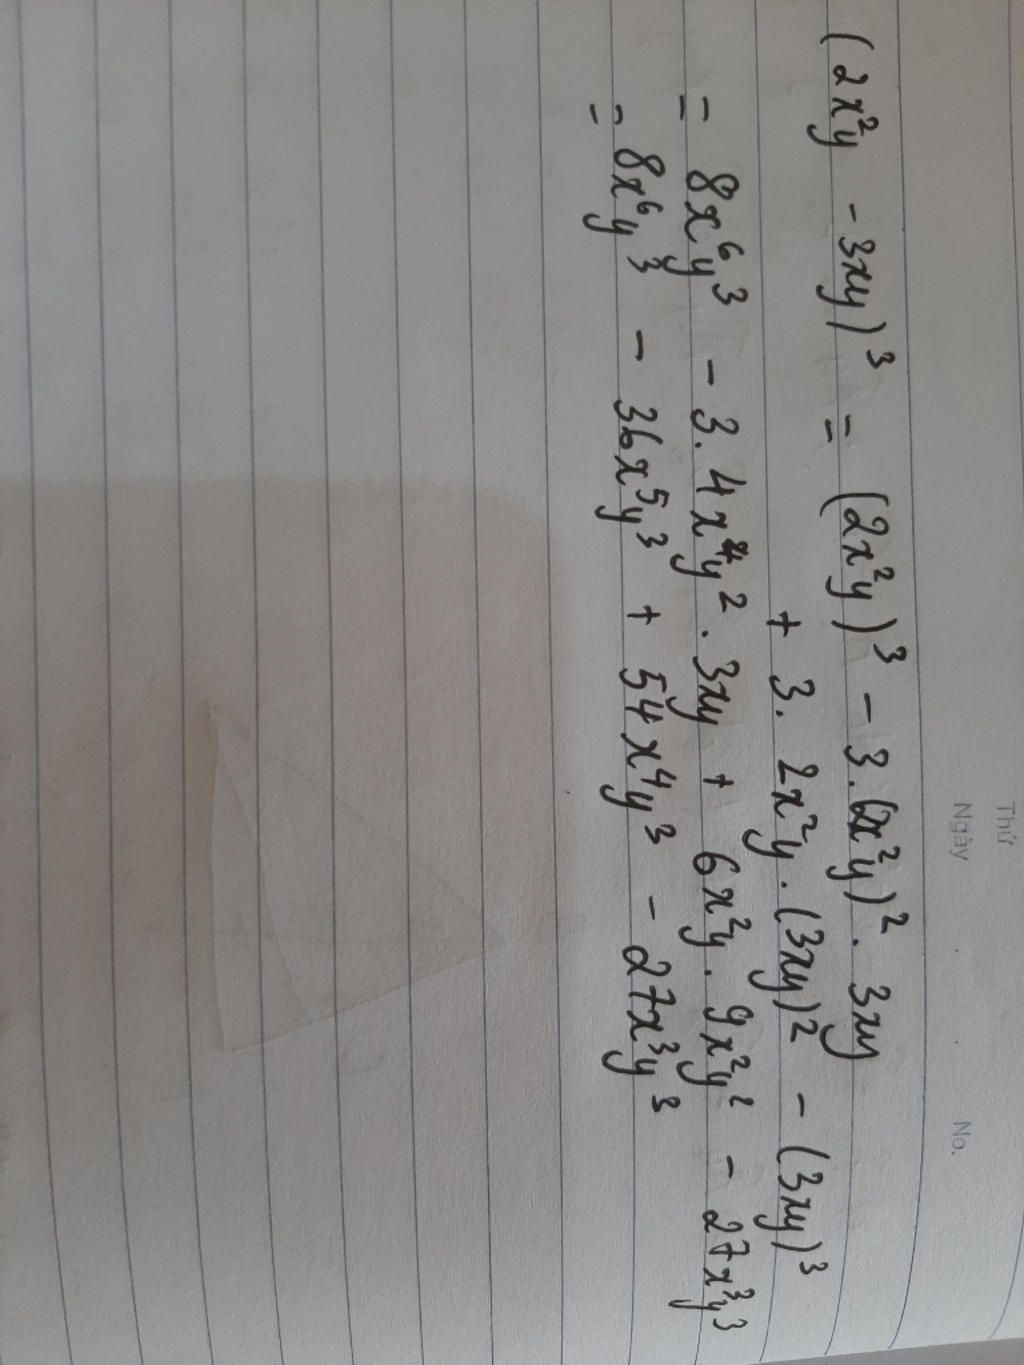 Thứ
Ngày
No.
(2x²y - 3xy)³ = (2x²y)³ - 3.(2x²y)². 3xy
+ 3. 2x²y.(3xy)² - (3xy)³
= 8x⁶y³ - 3. 4x⁴y². 3xy + 6x²y. 9x²y² - 27x³y³
= 8x⁶y³ - 36x⁵y³ + 54x⁴y³ - 27x³y³